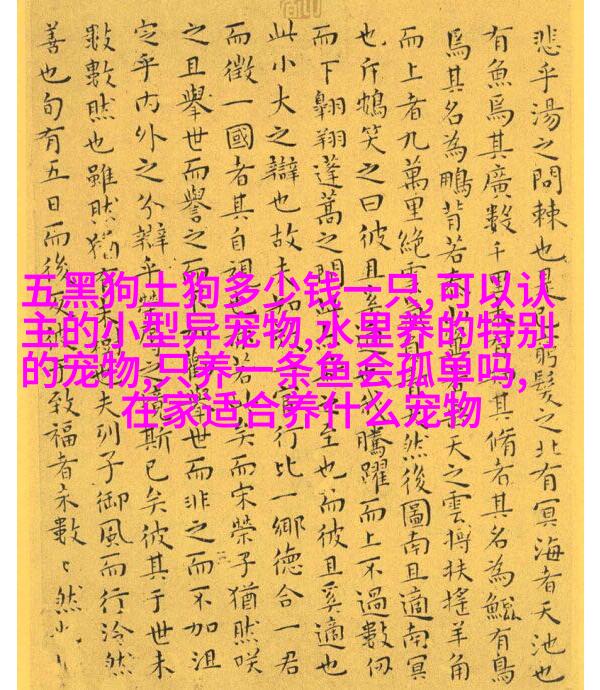 悲乎湯之問棘也是窮髮之北有冥海者天池也
有魚焉其廣數千里未其脩者其名為鯤有鳥
焉其名為鵬背若天之雲摶扶搖羊角
而上者九萬里絕雲然後圖南且適南冥
也斥鴳笑之曰彼且我騰躍而上不過數仞
而下翱翔蓬蒿之間此至也而彼且奚適也
此小大之辯也故行比一鄉德合一君
而徵一國者其自視也若矣而宋榮子猶然咲
之且舉世而譽之而舉世而非之而不加沮
定乎內外之分辯乎之境斯已矣彼其于世未
數數然也雖然猶未夫列子御風而行泠然
善也旬有五日而後反致福者未數〻然也
五黑狗土狗多少钱一只,可以认
主的小型异宠物,水里养的特别
的宠物,只养一条鱼会孤单吗,
在家适合养什么宠物